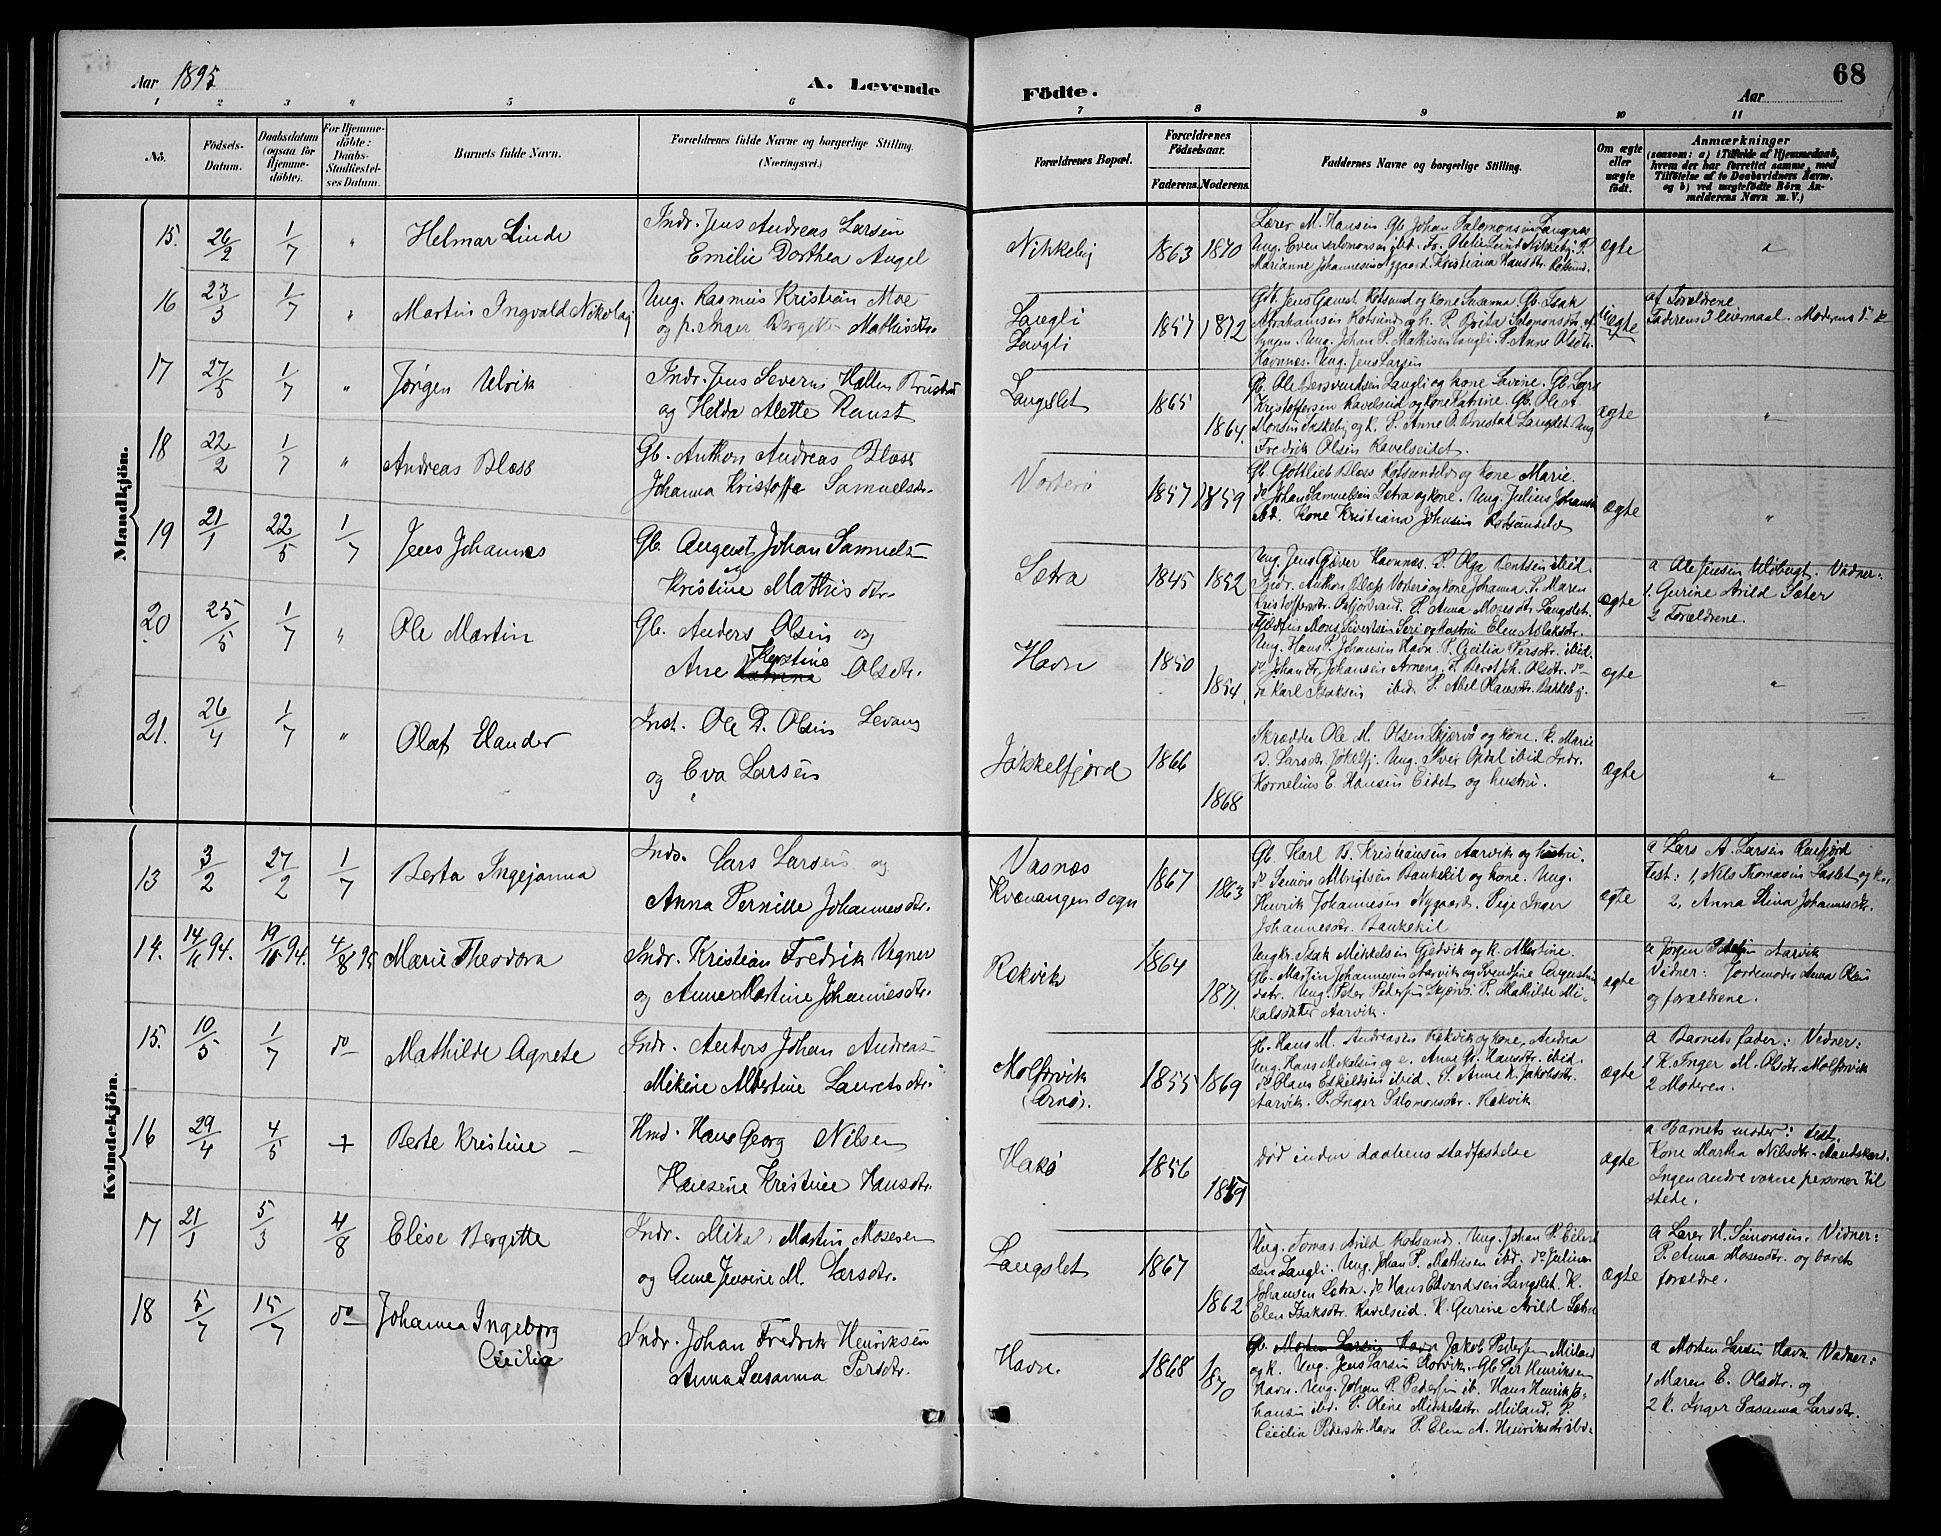 Aar 1895
A. Levende
Födte.
68
Aar
1 2 3 4 5 6 7 8 9 10 11
No.
Födsels-
Datum.
Daabsdatum
(ogsaa for
Hjemme-
döbte).
For Hjemme-
döbte:
Daabs-
Stadfæstel-
ses Datum.
Barnets fulde Navn.
Forældrenes fulde Navne og borgerlige Stilling.
(Næringsvei.)
Forældrenes Bopæl.
Forældrenes
Födselsaar.
Faderens. Moderens.
Faddernes Navne og borgerlige Stilling.
Om ægte
eller
uægte
födt.
Anmærkninger
(saasom: a) i Tilfælde af Hjemmedaab,
hvem der har forrettet samme, med
Tilföielse af to Daabsvidners Navne.
og b) ved uægtefödte Börn An-
melderens Navn m. V.)
Mandkjön.
15. 26/2 1/7 " Helmar Linde
Indr. Jens Andreas Larsen
Emilie Dorthea Angel
Nikkeby 1863 1870
Lærer M. Hansen Gb. Johan Salomonsen Langnes
Ung. Even Salomonsen ibid. Fr. Oletie Lund Nikkeby P.
Marianne Johannesen Nygaard. Kristiana Hansdtr. Rotsund.
ægte "
16 23/3 1/7 " Martin Ingvald Nikolaj
Ung. Rasmus Kristian Moe
og p. Inger Bergitte Mathisdtr.
Langli
Langli
1857 1872
Gb. Jens Gamst Rotsund og kone Susanna Gb. Isak
Abrahamsen Rotsund og k. P. Brita Salomonsdtr. af
Lyngen. Ung. Johan P. Mathisen Langli. P. Anne Olsdtr.
Havnnes. Ung. Jens Larsen
uægte
af Forældrene
Faderens 3 leiermaal. Moderens 1ste
17 27/5 1/7 " Jørgen Ulrik
Indr. Jens Severin Hallen Brustad
og Helda Alette Kaust
Langslet 1865 1864.
Gb. Ole Bersvendsen Langli og kone Lavine. Gb. Lars
Kristoffersen Ravelseid og kone Katrine. Gb. Ole A
Monsen Takkeby og k. P. Anne O. Brustad Langslet Ung
Fredrik Olsen Ravelseidet.
ægte "
18 22/2 1/7 " Andreas Blæss
Gb. Anthon Andreas Blæss
Johanna Kristoffa Samuelsdr.
Vorterø 1857 1859
Gb. Gottlieb Blæss Rotsundelv og kone Marie.
do Johan Samuelsen Sætra og kone. Ung. Julius Johansen
ibd. Kone Kristiana Johnsen Rotsundelv
ægte "
19 21/1 22/5 1/7 Jens Johannes
Gb. August Johan Samuels-
og
Kristine Mathisdtr.
Sætra 1845 1852
Ung. Jens Giæver Havnnes. P. Olga Bentsen ibid.
Indr. Anthon Blæss Vorterø og kone Johanna. P. Maren
Kristoffersdtr. Oxfjordvand. P. Anna Mosesdtr Langslet.
ægte
a Ole Jensen Uløbugt. Vidner:
1. Gurine Arild Sæter
2 Forældrene.
20 25/5 1/7 " Ole Martin
Gb. Anders Olsen og
Kerstine
Ane Katrina Olsdtr.
Havn 1850 1854.
Fjeldfin Mons Sivertsen Seri og Hustru Elen Aslaksdtr.
Ung. Hans P. Johansen Havn. P. Cecilia Persdtr. ibid.
do Johan Fr. Johansen Arneng P. Berot Joh. Olsdtr. do
do Karl Isaksen ibid. P. Abel Hansdtr. Bakkeby.
ægte "
21. 26/4 1/7 " Olaf Elander
Inst. Ole P. Olsen Levang
og Eva Larsen
Jøkkelfjord 1866 1868
Skrædder Ole M. Olsen Skjervø og kone. K. Marie
B. Larsdtr. Jøkelfj. Ung. Iver Opdal ibid Indr.
Kornelius E. Hansen Eidet og hustru.
ægte "
Kvindekjön.
13 3/2 27/2 1/7 Berta Ingejanna
Indr. Lars Larsen og
Anna Pernille Johannesdtr.
Vasnæs
Kvænangen sogn
1867 1863
Gb. Karl B. Kristiansen Aarvik og hustru.
do Simon Albrigtsen Baukekil og kone. Ung.
Henrik Johannesen Nygaard. Pige Inger
Johannesdtr. Baukekil
ægte
a Lars A. Larsen Reifjord
Test: 1, Nils Thomasen Saslet og k.,
2, Anna Stina Johannesdtr.
14. 14/11 94. 19/11 94. 4/8 95 Marie Theodora
Indr. Kristian Fredrik Vagner
og Anne Martine Johannesdtr.
Rekvik 1864 1871.
Ungkr. Isak Mikkelsen Gjøvik og K. Albertine.
Gb. Martin Johannesen Aarvik og Svendfine Augustin
datr. Ung. Peter Pedersen Skjervø. P. Mathilde Mi-
kalsdatter Aarvik.
ægte
a Jørgen Petersen Aarvik
Vidner: Jordemoder Anna Olsen
og forældrene.
15. 10/5 1/7 do Mathilde Agnete
Indr. Anders Johan Andreas-
Mikine Albertine Lauretsdtr.
Molforvik
(Arnø).
1855 1869
Gb. Hans M. Andreasen Rekvik og kone, Andrea
Ung. Hans Mikalsen og e. Anne Gr. Hansdtr. ibid.
do Olaus Eskildsen ibid. P. Anne K. Jakobsdtr.
Aarvik. P. Inger Salomonsdtr. Rekvik
ægte
a Barnets fader: Vidner:
1 K. Inger M. Olsdtr. Molforvik
2 Moderen.
16 29/4 4/5 + Berte Kristine
Hmd. Hans Georg Nilsen
Hansine Kristine Hansdtr.
Hakø 1856 1859
død inden daabens stadfæstelse
ægte
a Barnets moder: Test.
Kone Martha Nilsdtr. Maudskard.
Ingen andre voxne personer til
stede.
17 21/1 5/3 4/8 Elise Bergitte
Indr. Mika Martin Mosesen
og Anne Jensine M. Larsdtr.
Langslet 1867 1862
Ung. Tomas Arild Rotsund. Ung. Johan P. Eilert
sen Langli. Ung. Johan P. Mathisen ibd. do Julius
Johansen Sætra. do Hans Edvardsen Langslet. K.
Elen Isaksdtr. Ravelseid. K. Gurine Arild Sætra
ægte
a Lærer H. Simonsen. Vidner:
P. Anna Mosesdtr. og barnets
forældre.
18 5/7 15/7 do Johanna Ingeborg
Cecilia
Indr. Johan Fredrik Henriksen
Anna Susanna Persdtr.
Havn. 1868 1870
Gb. Morten Larsen Havn Jakob Pedersen Meiland
og k. Ung. Jens Larsen Rotvik. Gb Per Henriksen
Havn. Ung. Johan P. Pedersen ib. Hans Henrik Jo-
hansen ibid. P. Oline Mikkelsdtr. Meiland. P.
Cecilia Pedersdtr. Havn P. Elen A. Henriksdtr ibd.
a Morten Larsen Havn Vidner:
1 Maren E. Olsdtr. og
2 K. Inger Susanna Larsdtr.